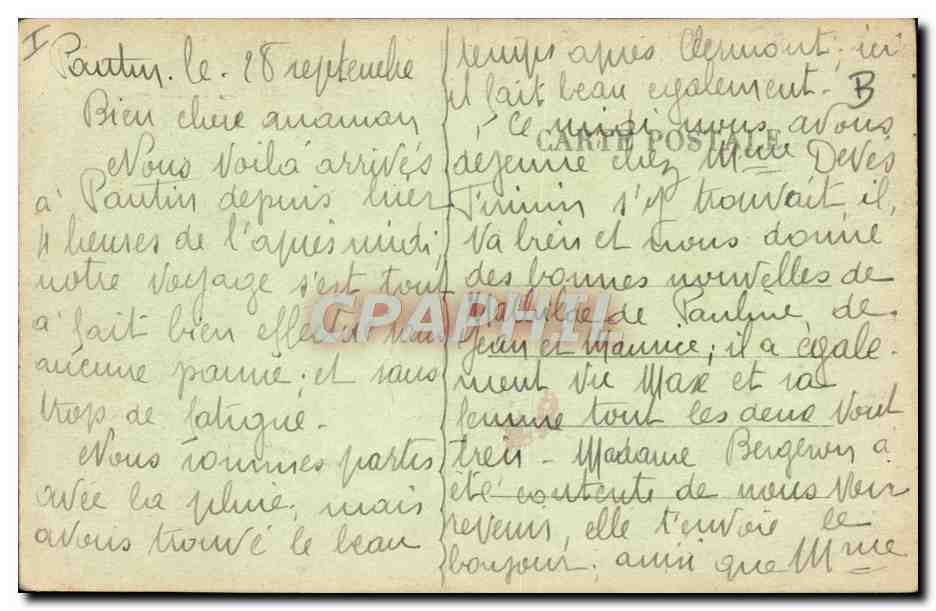 I
Pantin. le. 28 septembre
Bien chère maman
Nous voilà arrivés
à Pantin depuis hier
4 heures de l'après midi,
notre voyage s'est tout
à fait bien effectué sans
aucune panne. et sans
trop de fatigue.
Nous sommes partis
avec la pluie, mais
avons trouvé le beau
temps après Clermont, ici
il fait beau egalement.
B
CARTE POSTALE
Ce midi nous avons
dejeuné chez Mme Devès
s'y trouvait, il
va bien et nous donne
des bonnes nouvelles de
Mathilde de Pauline, de
Jean et Maurice; il a égale-
ment vu Max et sa
femme tout les deux vont
bien - Madame Bergeron a
été contente de nous voir
revenir, elle t'envoie le
bonjour, ainsi que Mme
CPAPHIL